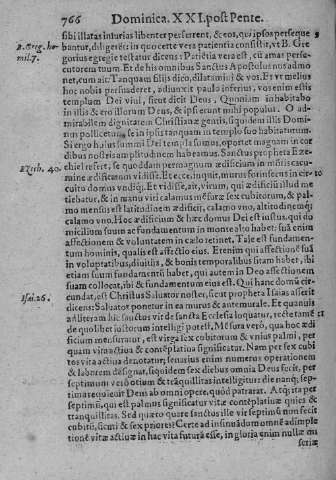 766 Dominica. XXI. post Pente.
sibi illatas iniurias libenter perferrent, & eos, qui ipsos perseque
bantur, diligerẽt: in quo certe vera patientia consistit, vt B. Gre
gorius egregie testatur dicens: Patiẽtia vera est, cũ amas perse-
cutorem tuum. Et de his omnibus Sanctus Apostolus nos admo
net, cum ait: Tanquam filiis dico, dilatamini & vos. Et vt melius
hoc nobis persuaderet, adiunxit paulo inferius, vos enim estis
templum Dei viui, sicut dicit Deus, Quoniam inhabitabo
in illis & ero illorum Deus, & ipsi erunt mihi populus. O ad-
mirabilem dignitatem Christianæ gentis, siquidem illis Domi-
nus pollicetur, se in ipsis tanquam in templo suo habitaturum.
Si ergo huius summi Dei templa sumus, oportet magnam in cor
dibus nostris amplitudinem habeamus. Sanctus propheta Eze-
chiel refert, se quoddam peroragnum ædificium in mõtis cacu-
mine ædificatum vidisse. Et ecce, inquit, murus forinsecus in cir-
cuitu domus vndiq;. Et vidisse, ait, virum, qui ædificiũ illud me
tiebatur, & in manu viri calamus mẽsuræ sex cubitorum, & pal-
mo mensus est latitudinem ædificij, calamo vno, altitudinemq;
calamo vno. Hoc ædificium & hæc domus Dei est iustus, qui do
micilium suum ac fundamentum in monte alto habet: suã enim
affectionem & voluntatem in cælo retinet, Tale est fundamen-
tum hominis, qualis est affectio eius. Etenim qui affectionẽ suã
in voluptatibus, diuitiis, & bonis temporalibus sitam habet, ibi
etiam suum fundamentũ habet, qui autem in Deo affectionem
suam collocat, ibi & fundamentum eius est. Qui hanc domũ cir-
cundat, est Christus Saluator noster, sicut propheta Isaias asserit
dicens: Saluator ponetur in ea murus & antemurale. Et quanuis
ad literam hic sanctus vir de sancta Ecclesia loquatur, rectè tamẽ
de quolibet iustorum intelligi potest. Mẽsura verò, qua hoc ædi
ficium mensuratur, est virga sex cubitorum & vnius palmi, per
quam vita actiua & contẽplatiua significatur. Nam per sex cubi
tos vita actiua denotatur; senarius enim numerus operationem
& laborem designat, siquidem sex diebus omnia Deus fecit, per
septimum verò otium & trãquillitas intelligitur: die nanq; sep-
tima requieuit Deus ab omni opere, quod patrarat. Atq; ita per
septimũ, qui est palmus significatur vitæ contẽplatiuæ quies &
tranquillitas. Sed quæro quare sanctus ille vir septimũ non fecit
cubitũ, sicuti & sex priores? Certe ad insinuãdum omnẽ adimple
tionẽ vitæ actiuæ in hac vita futurã esse, in gloria enim nullæ mi
seriæ
B. Greg. ho
mil. 7.
Ezech. 40.
Isai. 26.